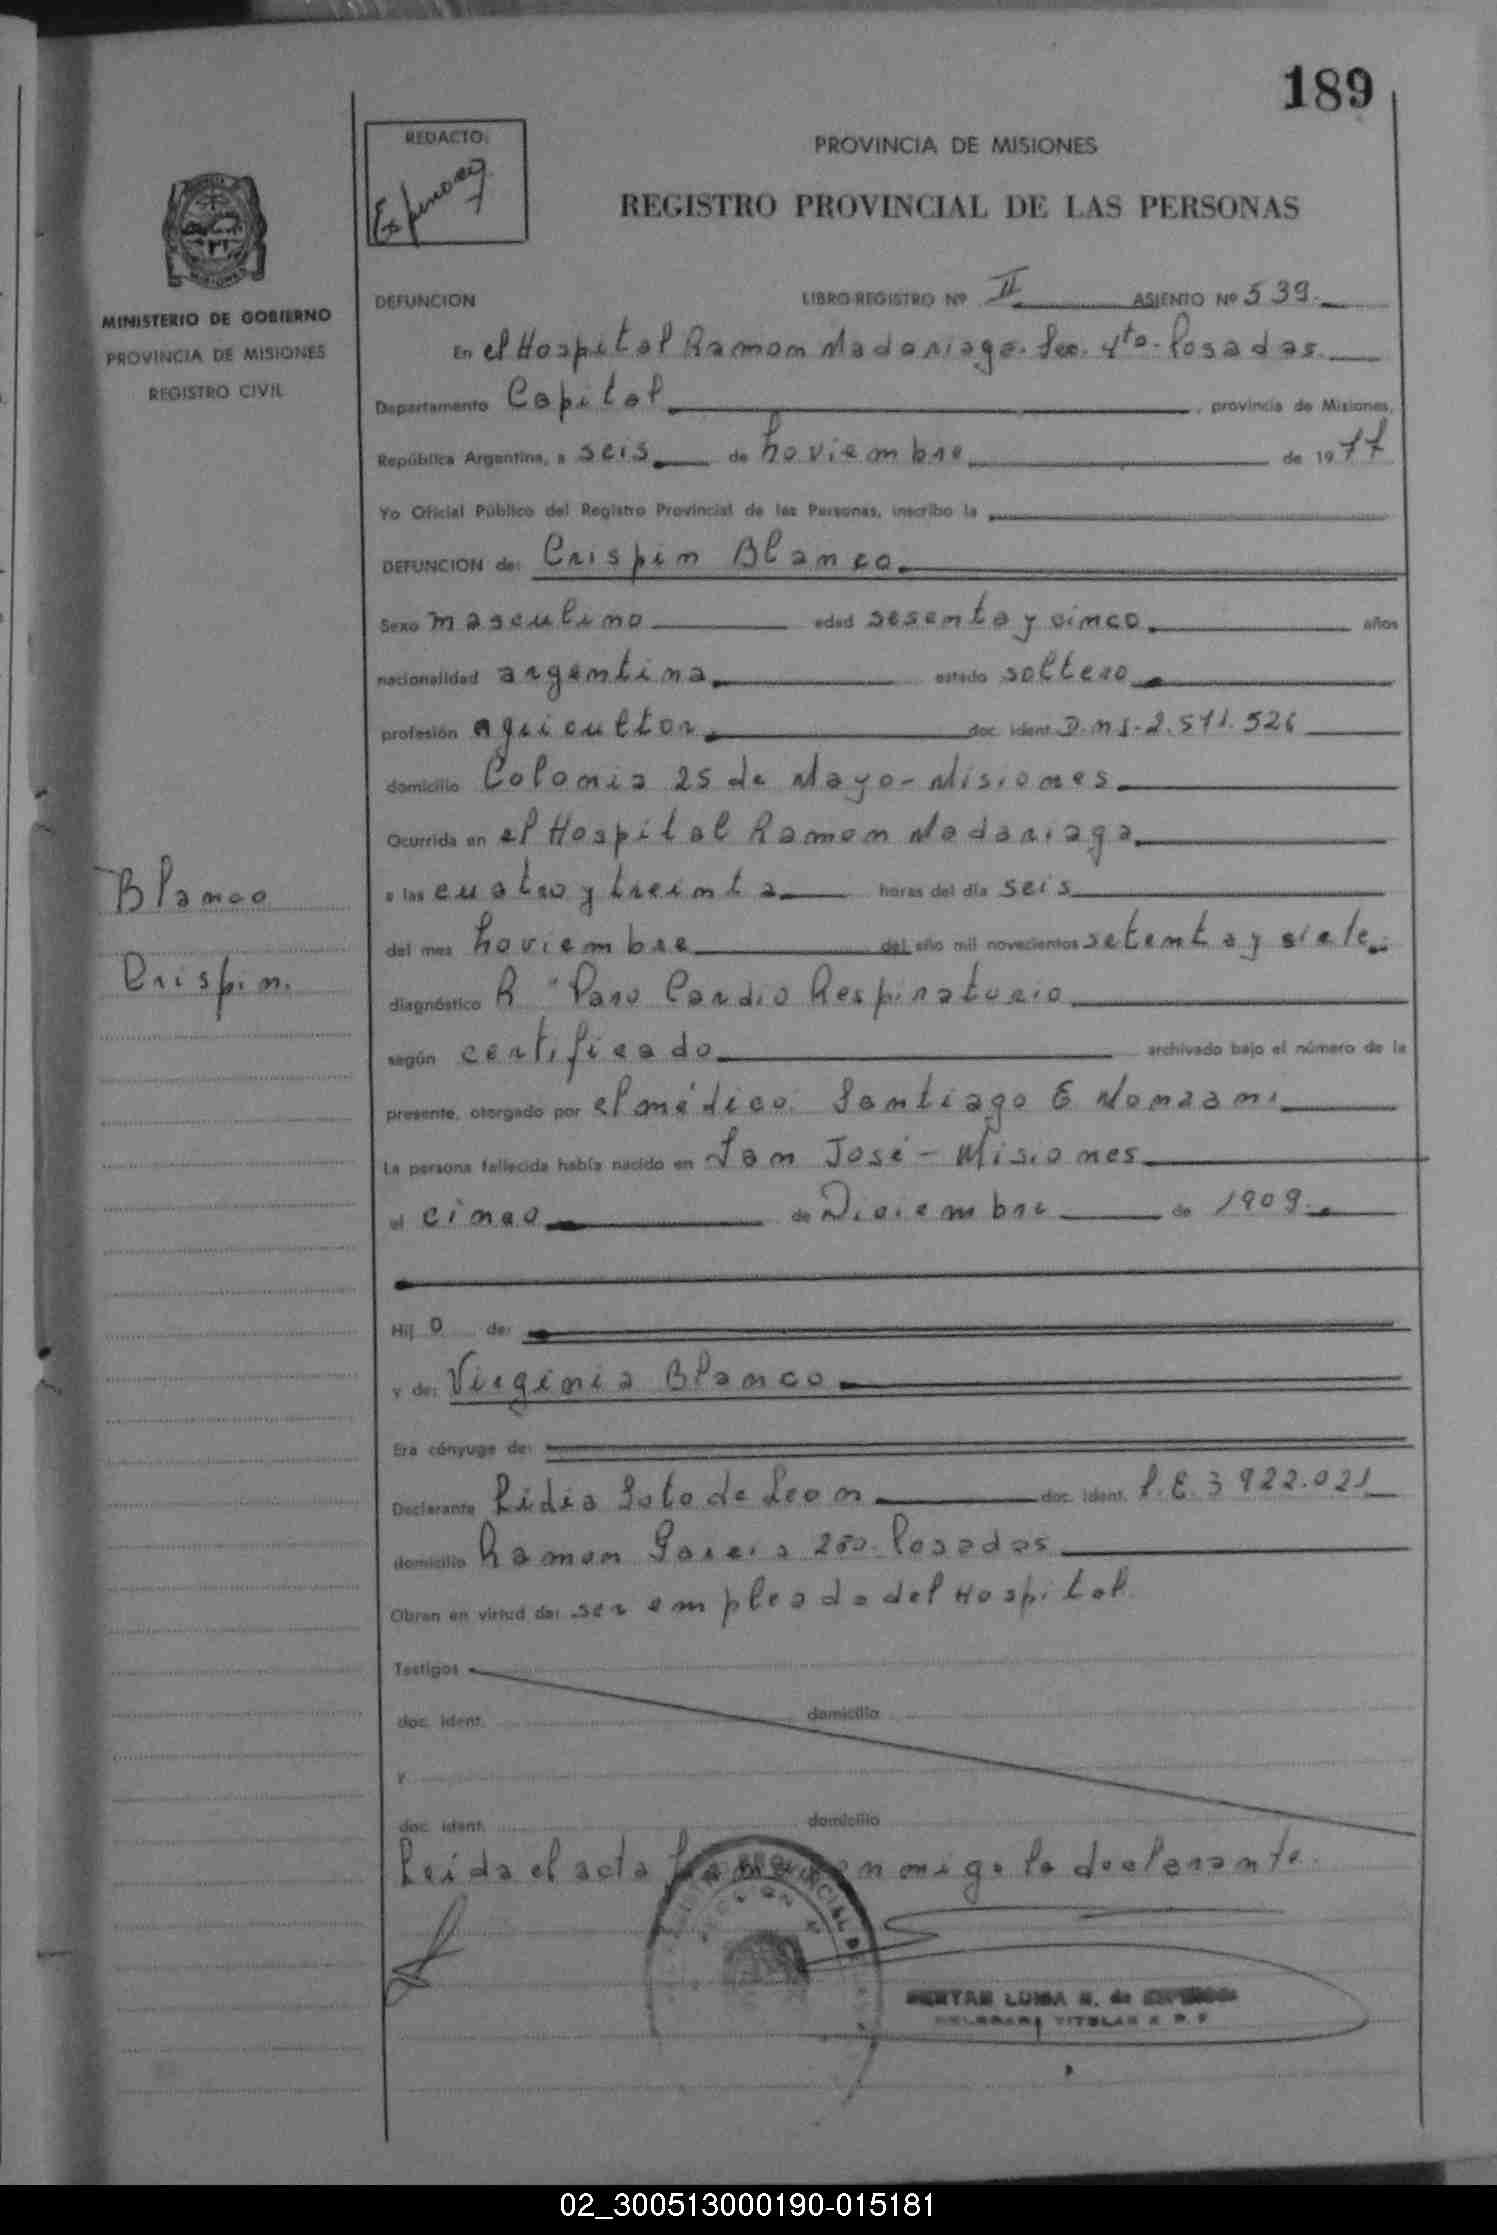 189
REDACTO:
Espinoza
PROVINCIA DE MISIONES
REGISTRO PROVINCIAL DE LAS PERSONAS
MINISTERIO DE GOBIERNO
PROVINCIA DE MISIONES
REGISTRO CIVIL
DEFUNCION LIBRO-REGISTRO Nº II ASIENTO Nº 539.
En el Hospital Ramon Madariaga. Sec. 4ta. Posadas.
Departamento Capital, provincia de Misiones,
República Argentina, a seis de noviembre de 1977
Yo Oficial Público del Registro Provincial de las Personas, inscribo la
DEFUNCION de: Crispin Blanco
Sexo masculino edad sesenta y cinco años
nacionalidad argentina estado soltero
profesión agricultor doc. ident. D.N.I.-2.571.526
domicilio Colonia 25 de Mayo - Misiones
Ocurrida en el Hospital Ramon Madariaga
a las cuatro y treinta horas del día seis
del mes noviembre del año mil novecientos setenta y siete
diagnóstico R " Paro Cardio Respiratorio
según certificado archivado bajo el número de la
presente, otorgado por el médico: Santiago E Monzani
La persona fallecida había nacido en San José - Misiones
el cinco de Diciembre de 1909.
Hij o de:
y de: Virginia Blanco
Era cónyuge de:
Declarante Lidia Soto de Leon doc. ident. L.E. 3 922.021
domicilio Ramon Garcia 250. Posadas
Obran en virtud de: ser empleada del Hospital.
Testigos
doc. ident. domicilio
y
doc. ident. domicilio
Leída el acta firma conmigo la declarante.
Blanco
Crispin.
LUISA de
TITULAR
02_300513000190-015181